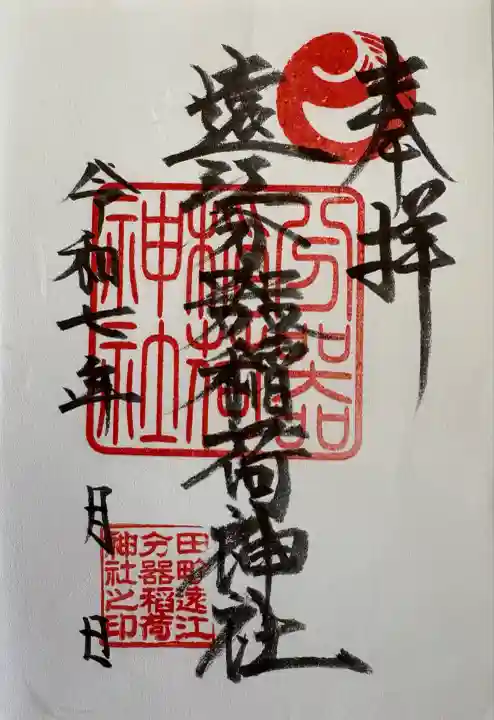 奉拝
遠江分器稲荷神社
分器
稲荷
神社
令和七年 月 日
田町遠江
分器稲荷
神社之印